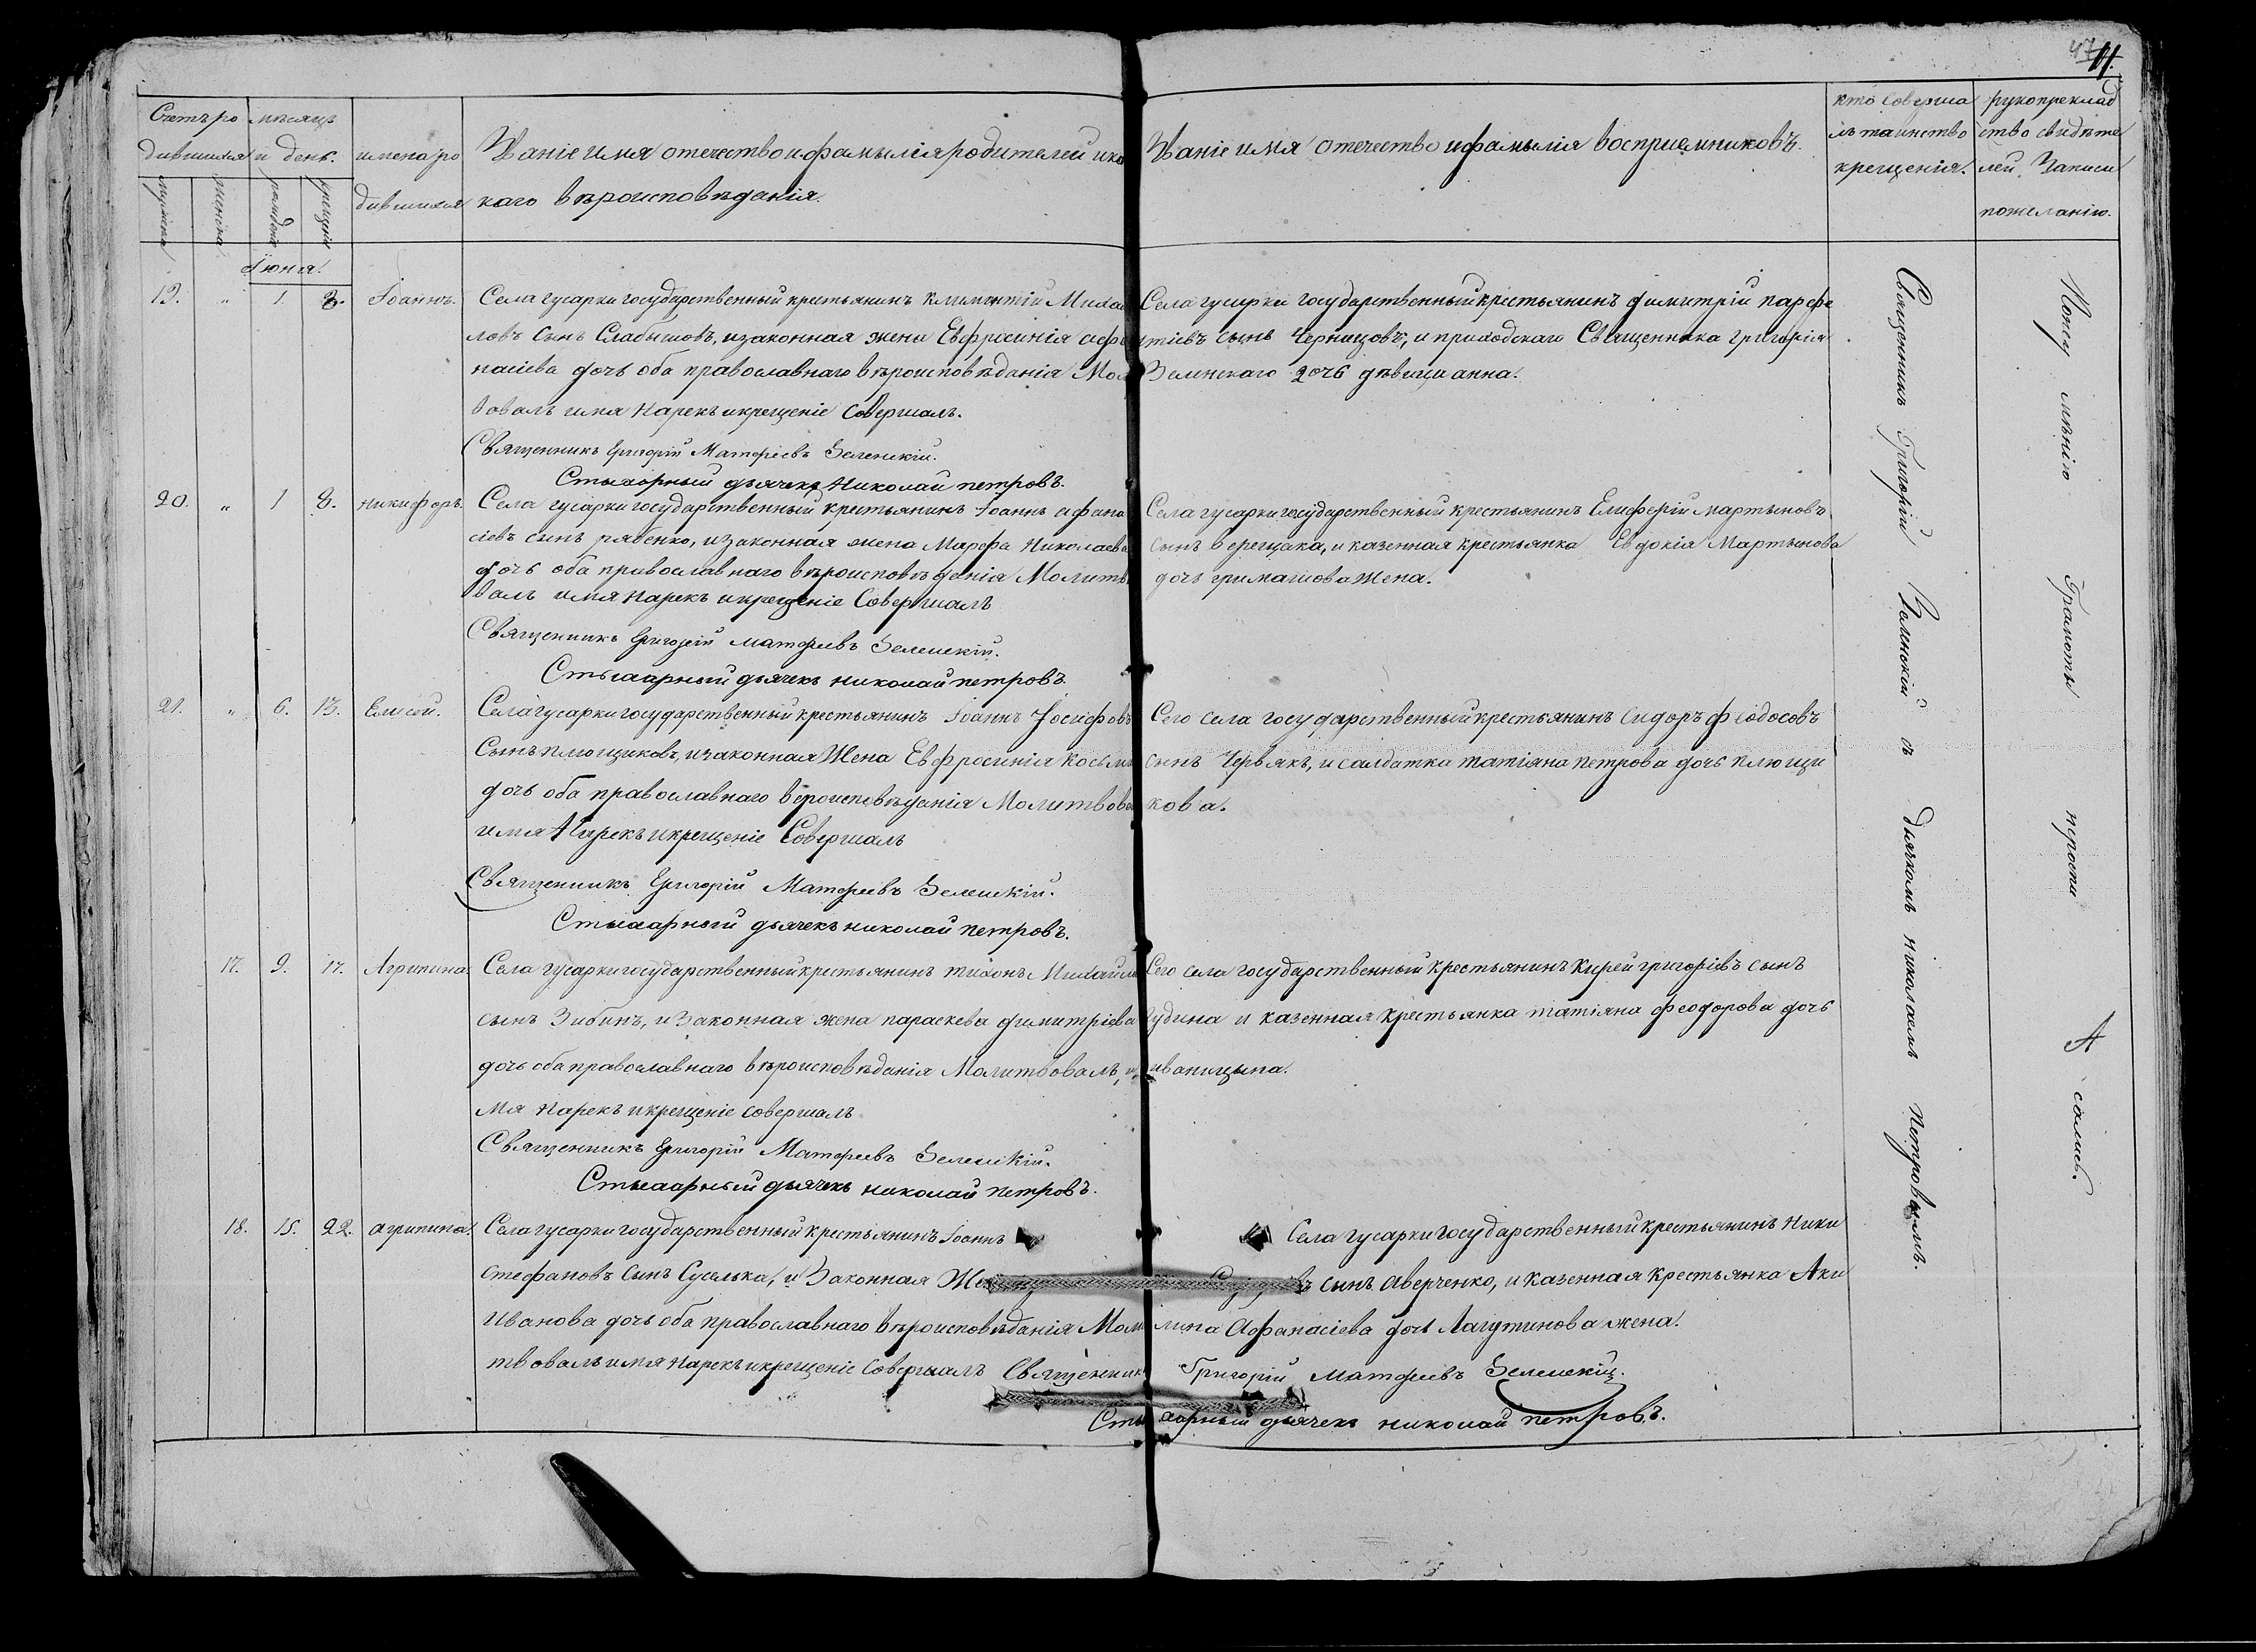 47
11.
Счетъ ро
дившихся
мѣсяцъ
и день.
мужеска
женска
рожденія
крещенія
имена ро
дившихся
Званіе имя отечество и фамылія родителей и ка
каго вѣроисповѣданія.
Званіе имя отечество и фамылія воспріемниковъ.
кто соверша
лъ таинство
крещенія.
рукоприклад
ство свидѣте
лей записи
по желанію.
Іюня.
19. " 1. 8. Іоаннъ.
Села гусарки государственный крестьянинъ климентій Михаи
ловъ сынъ Слабышовъ, и законная жена Евфросинія афа
насіева дочь оба православнаго вѣроисповѣданія Мол
вовалъ имя Нарекъ и крещеніе Совершалъ.
Священникъ Григорій Матфеевъ Зеленскій.
Стыхарный дьячекъ Николай петровъ.
Села гусарки государственный крестьянинъ димитрій парфе
тіевъ сынъ Черницовъ, и приходскаго Священника григорія
Зеленскаго дочь дѣвица анна.
20. " 1 8. Никифоръ.
Села гусарки государственный крестьянинъ Іоаннъ афана
сіевъ сынъ рябенко, и законная жена Марфа Николаева
дочь оба православнаго вѣроисповѣданія Молитв
валъ имя Нарекъ и крещеніе Совершалъ
Священникъ Григорій матфеевъ Зеленскій.
Стыхарный дьячекъ николай петровъ.
Села гусарки государственный крестьянинъ Елиферій мартыновъ
сынъ верещака, и казенная крестьянка Евдокія Мартынова
дочь гримашова жена.
21. " 6. 13. Елисей.
Села гусарки государственный крестьянинъ Іоаннъ Іосифовъ
Сынъ плющиковъ, и законная Жена Евфросинія Косьми
дочь оба православнаго вѣроисповѣданія Молитвова
имя Нарекъ и крещеніе Совершалъ
Священникъ Григорій Матфеевъ Зеленскій.
Стыхарный дьячекъ николай петровъ.
Сего села государственный крестьянинъ Сидоръ феодосовъ
сынъ Червякъ, и салдатка татіяна петрова дочь плющи
кова.
17. 9. 17. Агрипина.
Села гусарки государственный крестьянинъ тихонъ Михайло
сынъ Зибинъ, и Законная жена параскева димитріева
дочь оба православнаго вѣроисповѣданія Молитвовалъ, и
мя Нарекъ и крещеніе совершалъ
Священникъ Григорій Матфеевъ Зеленскій.
Стыхарный дьячекъ николай петровъ.
Сего села государственный крестьянинъ Кирей григоріевъ сынъ
гудина и казенная крестьянка татіяна феодорова дочь
иваницына.
18. 15. 22. агрипина.
Села гусарки государственный крестьянинъ Іоаннъ
Стефановъ Сынъ Суселька, и Законная Же
Иванова дочь оба православнаго вѣроисповѣданія Моли
твовалъ имя Нарекъ и крещеніе Совершалъ Священник
Села гусарки государственный крестьянинъ Ники
въ сынъ Аверченко, и казенная Крестьянка Аки
лина Афанасіева дочь Лагутинова жена.
Григорій матфеевъ Зеленскій.
Стыхарный дьячекъ николай петровъ.
Священникъ Григорій Зеленскій съ дьячкомъ Николаемъ Петровымъ.